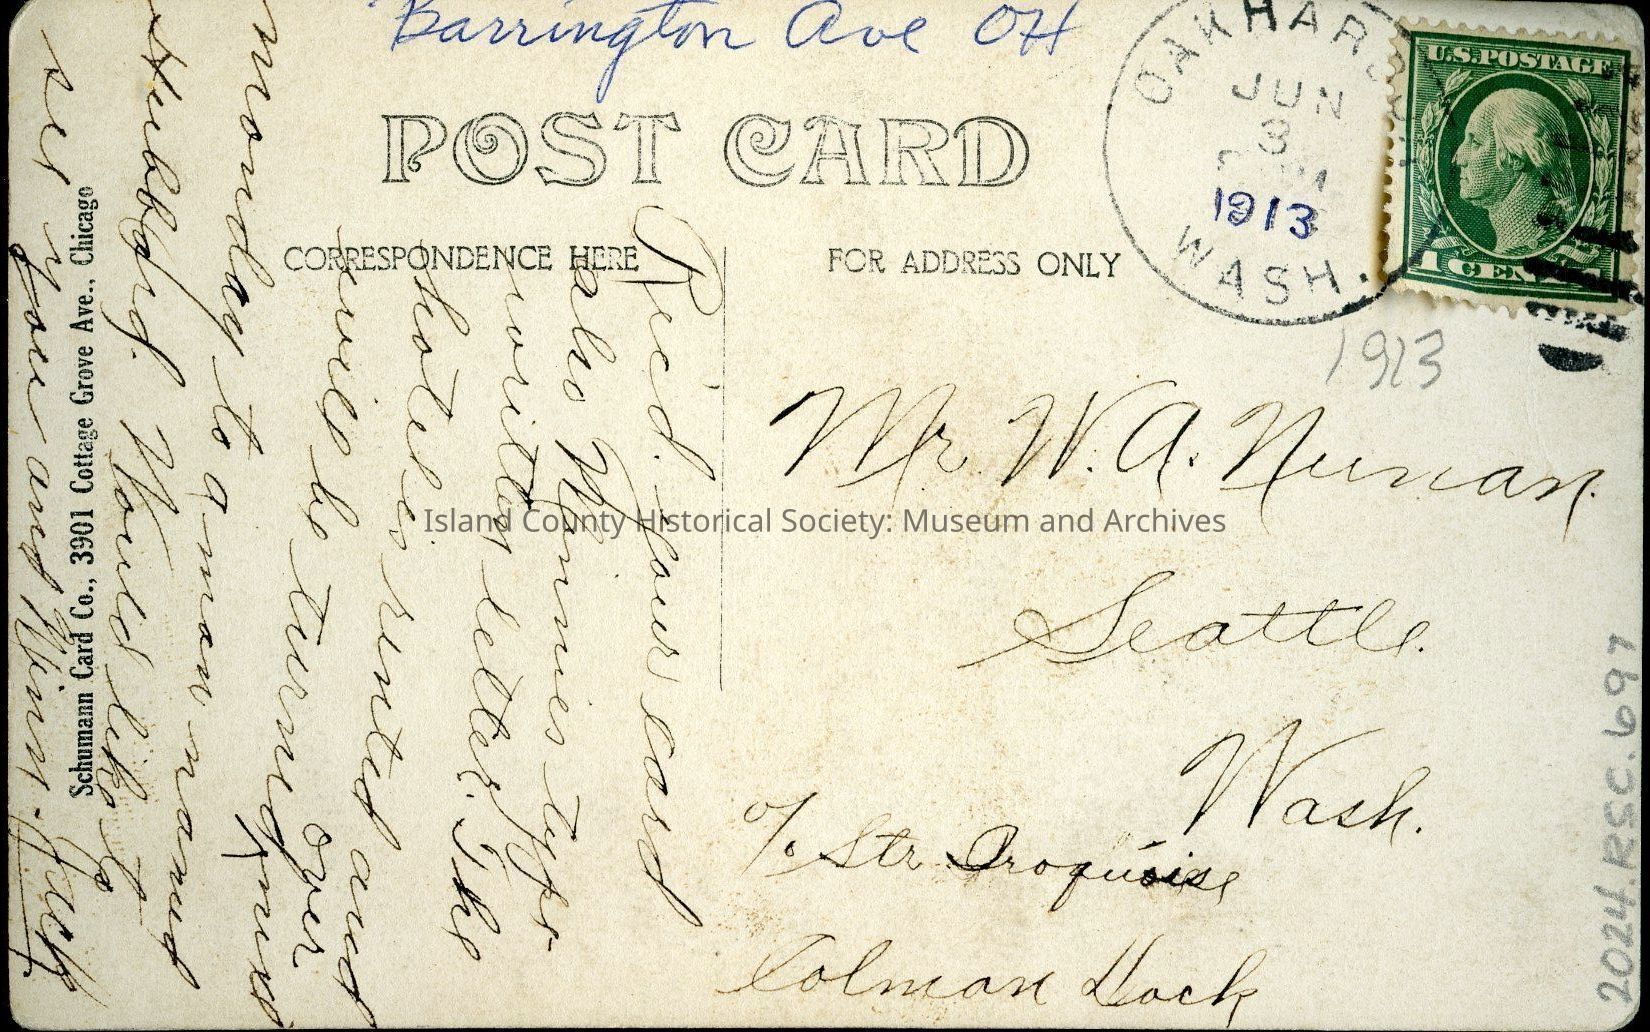 Barrington Ave OH
POST CARD
CORRESPONDENCE HERE
FOR ADDRESS ONLY
OAK HARBOR
JUN
3
PM
1913
WASH.
U.S. POSTAGE
1 CENT
1913
Rec'd. your card
also Winnies type
written letter. The
hotel is rented and
will be turned over
monday to a man named
Hubbard. Would like to
see you and Winn. Jack
Mr. W. A. Neuman.
Seattle.
Wash.
c/o Str Iroquoise
Colman Dock
Schumann Card Co., 3901 Cottage Grove Ave., Chicago
Island County Historical Society: Museum and Archives
2024.RSC.697